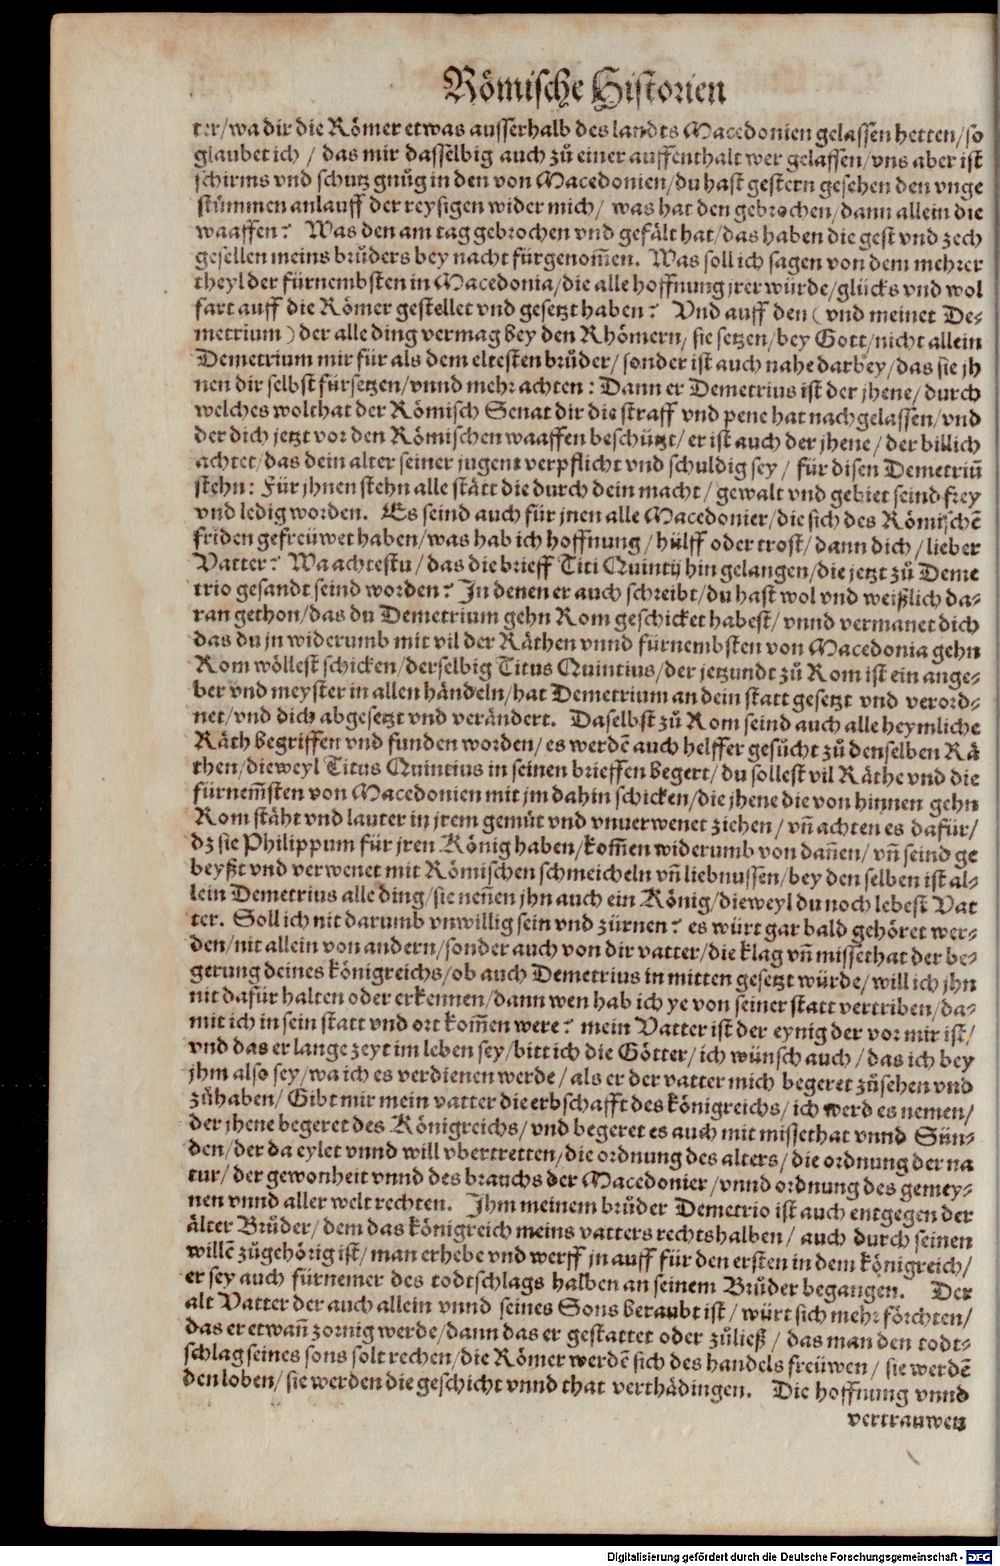 Römische Historien
ter/wa dir die Römer etwas ausserhalb des landts Macedonien gelassen hetten/so
glaubet ich / das mir dasselbig auch zů einer auffenthalt wer gelassen/vns aber ist
schirms vnd schutz gnůg in den von Macedonien/du hast gestern gesehen den vnge
stümmen anlauff der reysigen wider mich/ was hat den gebrochen/dann allein die
waaffen? Was den am tag gebrochen vnd gefält hat/das haben die gest vnd zech
gesellen meins brůders bey nacht fürgenom̃en. Was soll ich sagen von dem mehrer
theyl der fürnembsten in Macedonia/die alle hoffnung jrer würde/glücks vnd wol
fart auff die Römer gestellet vnd gesetzt haben? Vnd auff den (vnd meinet De-
metrium) der alle ding vermag bey den Rhömern/ sie setzen/bey Gott/nicht allein
Demetrium mir für als dem eltesten brůder/sonder ist auch nahe darbey/das sie jh
nen dir selbst fürsetzen/vnnd mehr achten: Dann er Demetrius ist der jhene/durch
welches wolthat der Römisch Senat dir die straff vnd pene hat nachgelassen/vnd
der dich jetzt vor den Römischen waaffen beschützt/er ist auch der jhene/der billich
achtet/das dein alter seiner jugent verpflicht vnd schuldig sey/ für disen Demetriũ
stehn: Für jhnen stehn alle stätt die durch dein macht/gewalt vnd gebiet seind frey
vnd ledig worden. Es seind auch für jnen alle Macedonier/die sich des Römischẽ
friden gefreüwet haben/was hab ich hoffnung/hülff oder trost/dann dich/lieber
Vatter? Wa achtestu/das die brieff Titi Quintij hin gelangen/die jetzt zů Deme
trio gesandt seind worden? In denen er auch schreibt/du hast wol vnd weißlich da-
ran gethon/das du Demetrium gehn Rom geschicket habest/vnnd vermanet dich
das du jn widerumb mit vil der Räthen vnnd fürnembsten von Macedonia gehn
Rom wöllest schicken/derselbig Titus Quintius/der jetzundt zů Rom ist ein ange-
ber vnd meyster in allen händeln/hat Demetrium an dein statt gesetzt vnd verord-
net/vnd dich abgesetzt vnd verändert. Daselbst zů Rom seind auch alle heymliche
Räth begriffen vnd funden worden/es werdẽ auch helffer gesůcht zů denselben Rä
then/dieweyl Titus Quintius in seinen brieffen begert/du sollest vil Räthe vnd die
fürnem̃sten von Macedonien mit jm dahin schicken/die jhene die von hinnen gehn
Rom stäht vnd lauter in jrem gemüt vnd vnuerwenet ziehen/vñ achten es dafür/
dz sie Philippum für jren König haben/kom̃en widerumb von dañen/vñ seind ge
beyßt vnd verwenet mit Römischen schmeicheln vñ liebnussen/bey den selben ist al-
lein Demetrius alle ding/sie neñen jhn auch ein König/dieweyl du noch lebest Vat
ter. Soll ich nit darumb vnwillig sein vnd zürnen? es würt gar bald gehöret wer-
den/nit allein von andern/sonder auch von dir vatter/die klag vñ missethat der be-
gerung deines königreichs/ob auch Demetrius in mitten gesetzt würde/will ich jhn
nit dafür halten oder erkennen/dann wen hab ich ye von seiner statt vertriben/da-
mit ich in sein statt vnd ort kom̃en were? mein Vatter ist der eynig der vor mir ist/
vnd das er lange zeyt im leben sey/bitt ich die Götter/ich wünsch auch/das ich bey
jhm also sey/wa ich es verdienen werde/als er der vatter mich begeret zůsehen vnd
zůhaben/Gibt mir mein vatter die erbschafft des königreichs/ich werd es nemen/
der jhene begeret des Königreichs/vnd begeret es auch mit missethat vnnd Sün-
den/der da eylet vnnd will vbertretten/die ordnung des alters/die ordnung der na
tur/der gewonheit vnnd des brauchs der Macedonier/vnnd ordnung des gemey-
nen vnnd aller welt rechten. Ihm meinem brůder Demetrio ist auch entgegen der
älter Brůder/dem das königreich meins vatters rechtshalben/ auch durch seinen
willẽ zůgehörig ist/man erhebe vnd werff jn auff für den ersten in dem königreich/
er sey auch fürnemer des todtschlags halben an seinem Brůder begangen. Der
alt Vatter der auch allein vnnd seines Sons beraubt ist/würt sich mehr förchten/
das er etwañ zornig werde/dann das er gestattet oder zůließ/das man den todt-
schlag seines sons solt rechen/die Römer werdẽ sich des handels freüwen/ sie werdẽ
den loben/sie werden die geschicht vnnd that verthädingen. Die hoffnung vnnd
vertrauwen
Digitalisierung gefördert durch die Deutsche Forschungsgemeinschaft - DFG